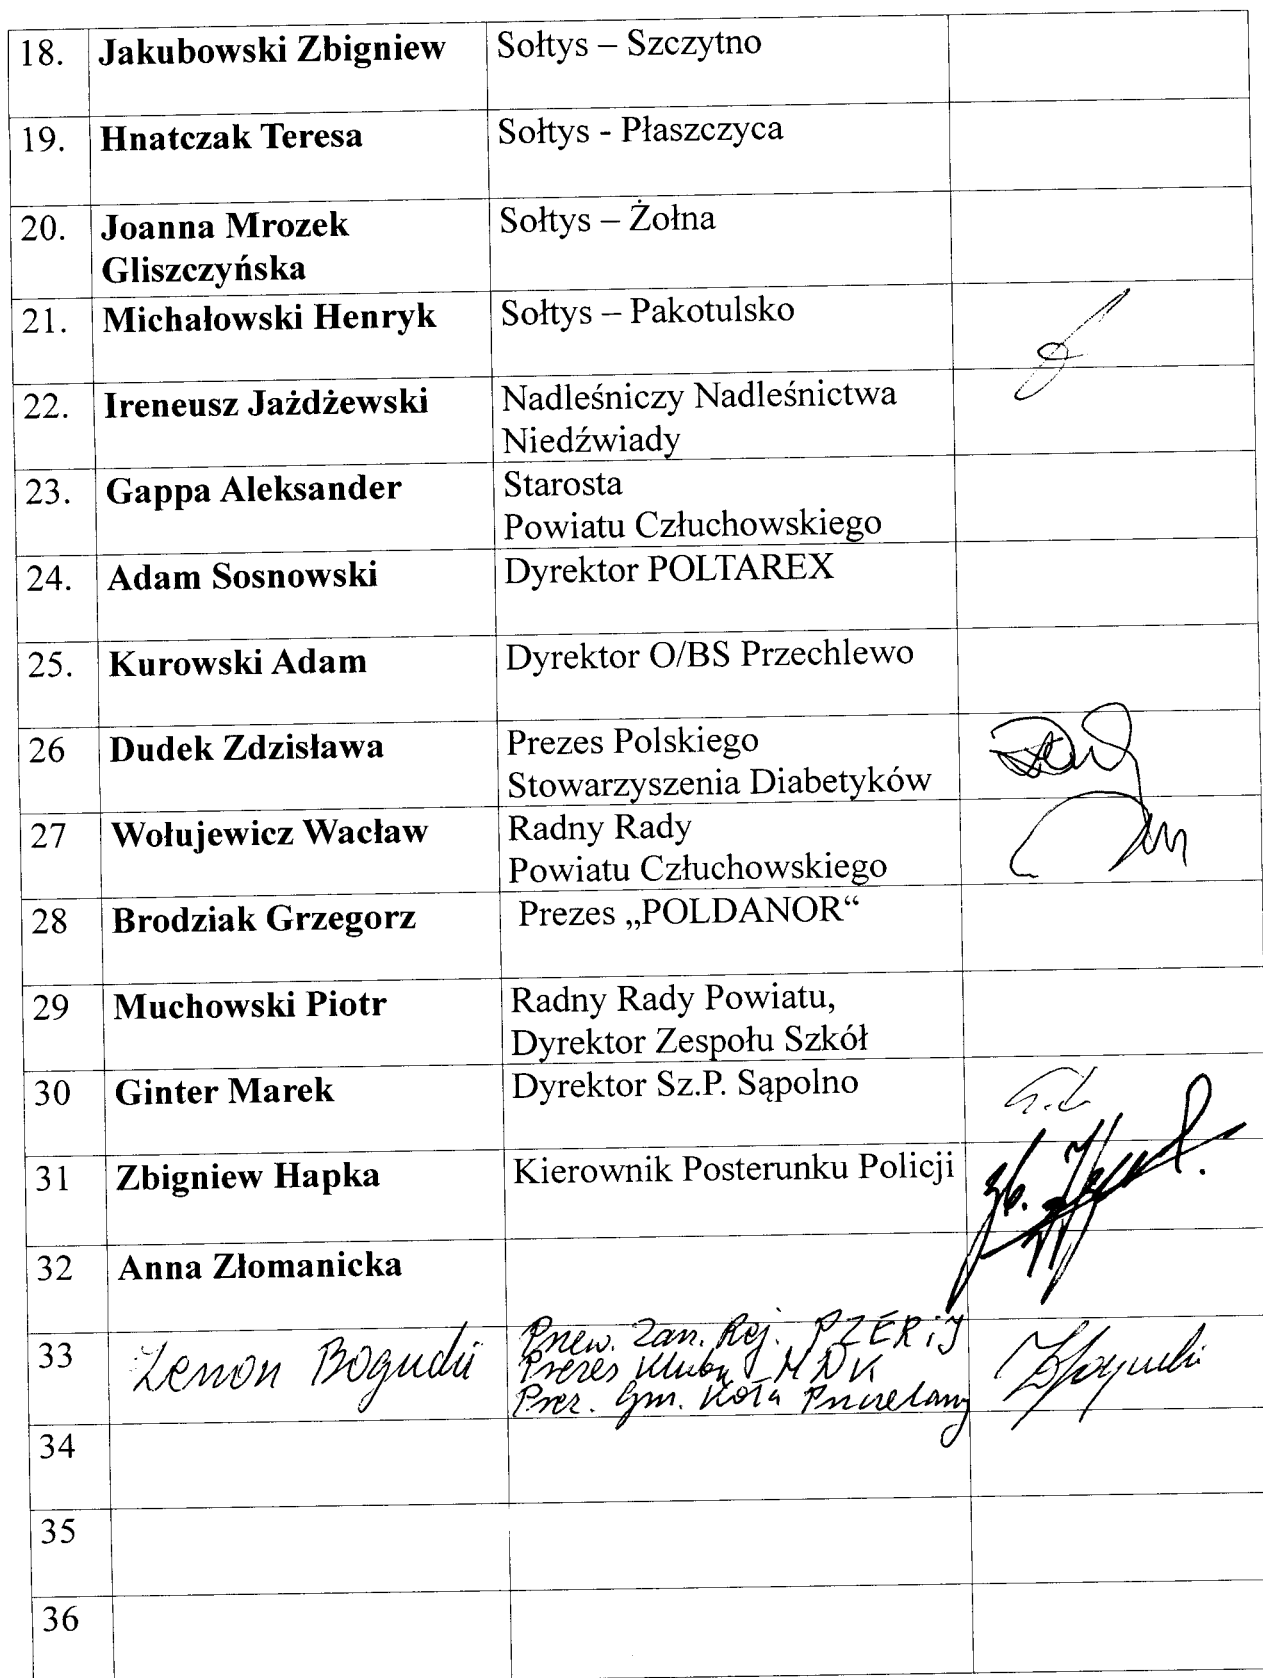 18. Jakubowski Zbigniew Sołtys – Szczytno
19. Hnatczak Teresa Sołtys - Płaszczyca
20. Joanna Mrozek Sołtys – Żołna
Gliszczyńska
21. Michałowski Henryk Sołtys – Pakotulsko
22. Ireneusz Jażdżewski Nadleśniczy Nadleśnictwa
Niedźwiady
23. Gappa Aleksander Starosta
Powiatu Człuchowskiego
24. Adam Sosnowski Dyrektor POLTAREX
25. Kurowski Adam Dyrektor O/BS Przechlewo
26 Dudek Zdzisława Prezes Polskiego
Stowarzyszenia Diabetyków
27 Wołujewicz Wacław Radny Rady
Powiatu Człuchowskiego
28 Brodziak Grzegorz Prezes „POLDANOR“
29 Muchowski Piotr Radny Rady Powiatu,
Dyrektor Zespołu Szkół
30 Ginter Marek Dyrektor Sz.P. Sąpolno
31 Zbigniew Hapka Kierownik Posterunku Policji
32 Anna Złomanicka
Zarz. Rej. PZERiI
33 Zenon Bogucki Prezes Klubu
Prez. Gm. Koła
34
35
36